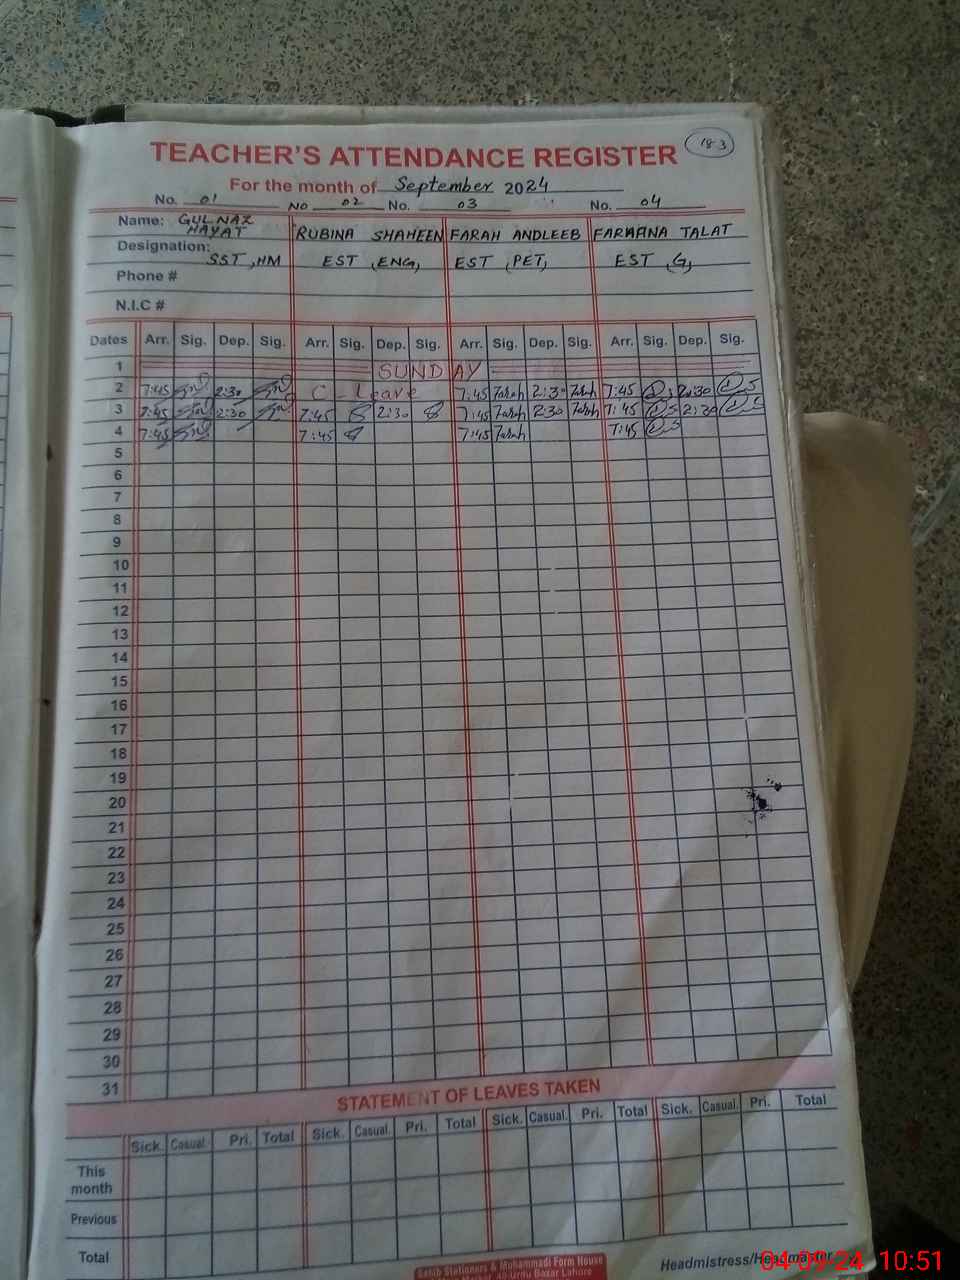 18-3
TEACHER'S ATTENDANCE REGISTER
For the month of September 2024
No. 01 No 02 No. 03 No. 04
Name: GULNAZ HAYAT RUBINA SHAHEEN FARAH ANDLEEB FARHANA TALAT
Designation: SST, HM EST (ENG) EST (PET) EST (G)
Phone #
N.I.C #
Dates Arr. Sig. Dep. Sig. Arr. Sig. Dep. Sig. Arr. Sig. Dep. Sig. Arr. Sig. Dep. Sig.
1 SUNDAY
2 7:45 2:30 C - Leave 7:45 Farah 2:30 Farah 7:45 2:30
3 7:45 2:30 7:45 2:30 7:45 Farah 2:30 Farah 7:45 2:30
4 7:45 7:45 7:45 Farah 7:45
5
6
7
8
9
10
11
12
13
14
15
16
17
18
19
20
21
22
23
24
25
26
27
28
29
30
31
STATEMENT OF LEAVES TAKEN
Sick. Casual. Pri. Total Sick. Casual. Pri. Total Sick. Casual. Pri. Total Sick. Casual. Pri. Total
This month
Previous
Total
Stationers & Muhammadi Form House
40-Urdu Bazar Lahore
Headmistress/Headmaster
04-09-24 10:51